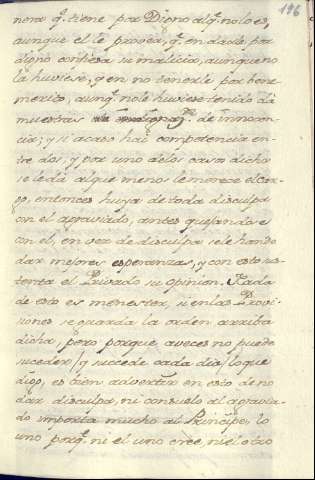 196
nera q.e tiene por Digno al q.e no lo es,
aunque el le provea, q.e en darle por
digno confiesa su malicia, aunque no
la huviese, y en no tenerle por bene
merito, aunq.e no le huviese tenido da
muestras de innocen
cia; y si acaso hai competencia en
tre dos, y por uno delos casos dichos
se le dá al que menos le merece el Car
go, entonces huya de toda disculpa
con el agraviado, antes quejandose
con el, en vez de disculpa se le han de
dar mejores esperanzas, y con esto sus
tenta el Privado su opinion. Nada
de esto es menester, si en las Provi
siones se guarda la orden arriba
dicha, pero porque aveces no puede
suceder, y succede cada dia, lo que
digo, es bien advertir en esto de no
dar disculpa, ni consuelo al agravia
do importa mucho al Principe, lo
uno porq.e ni el uno cree ni el otro